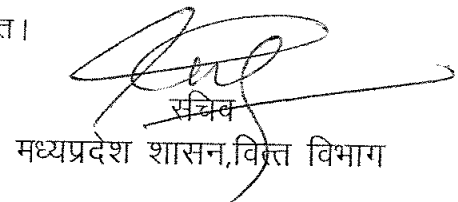 त।
सचिव
मध्यप्रदेश शासन,वित्त विभाग